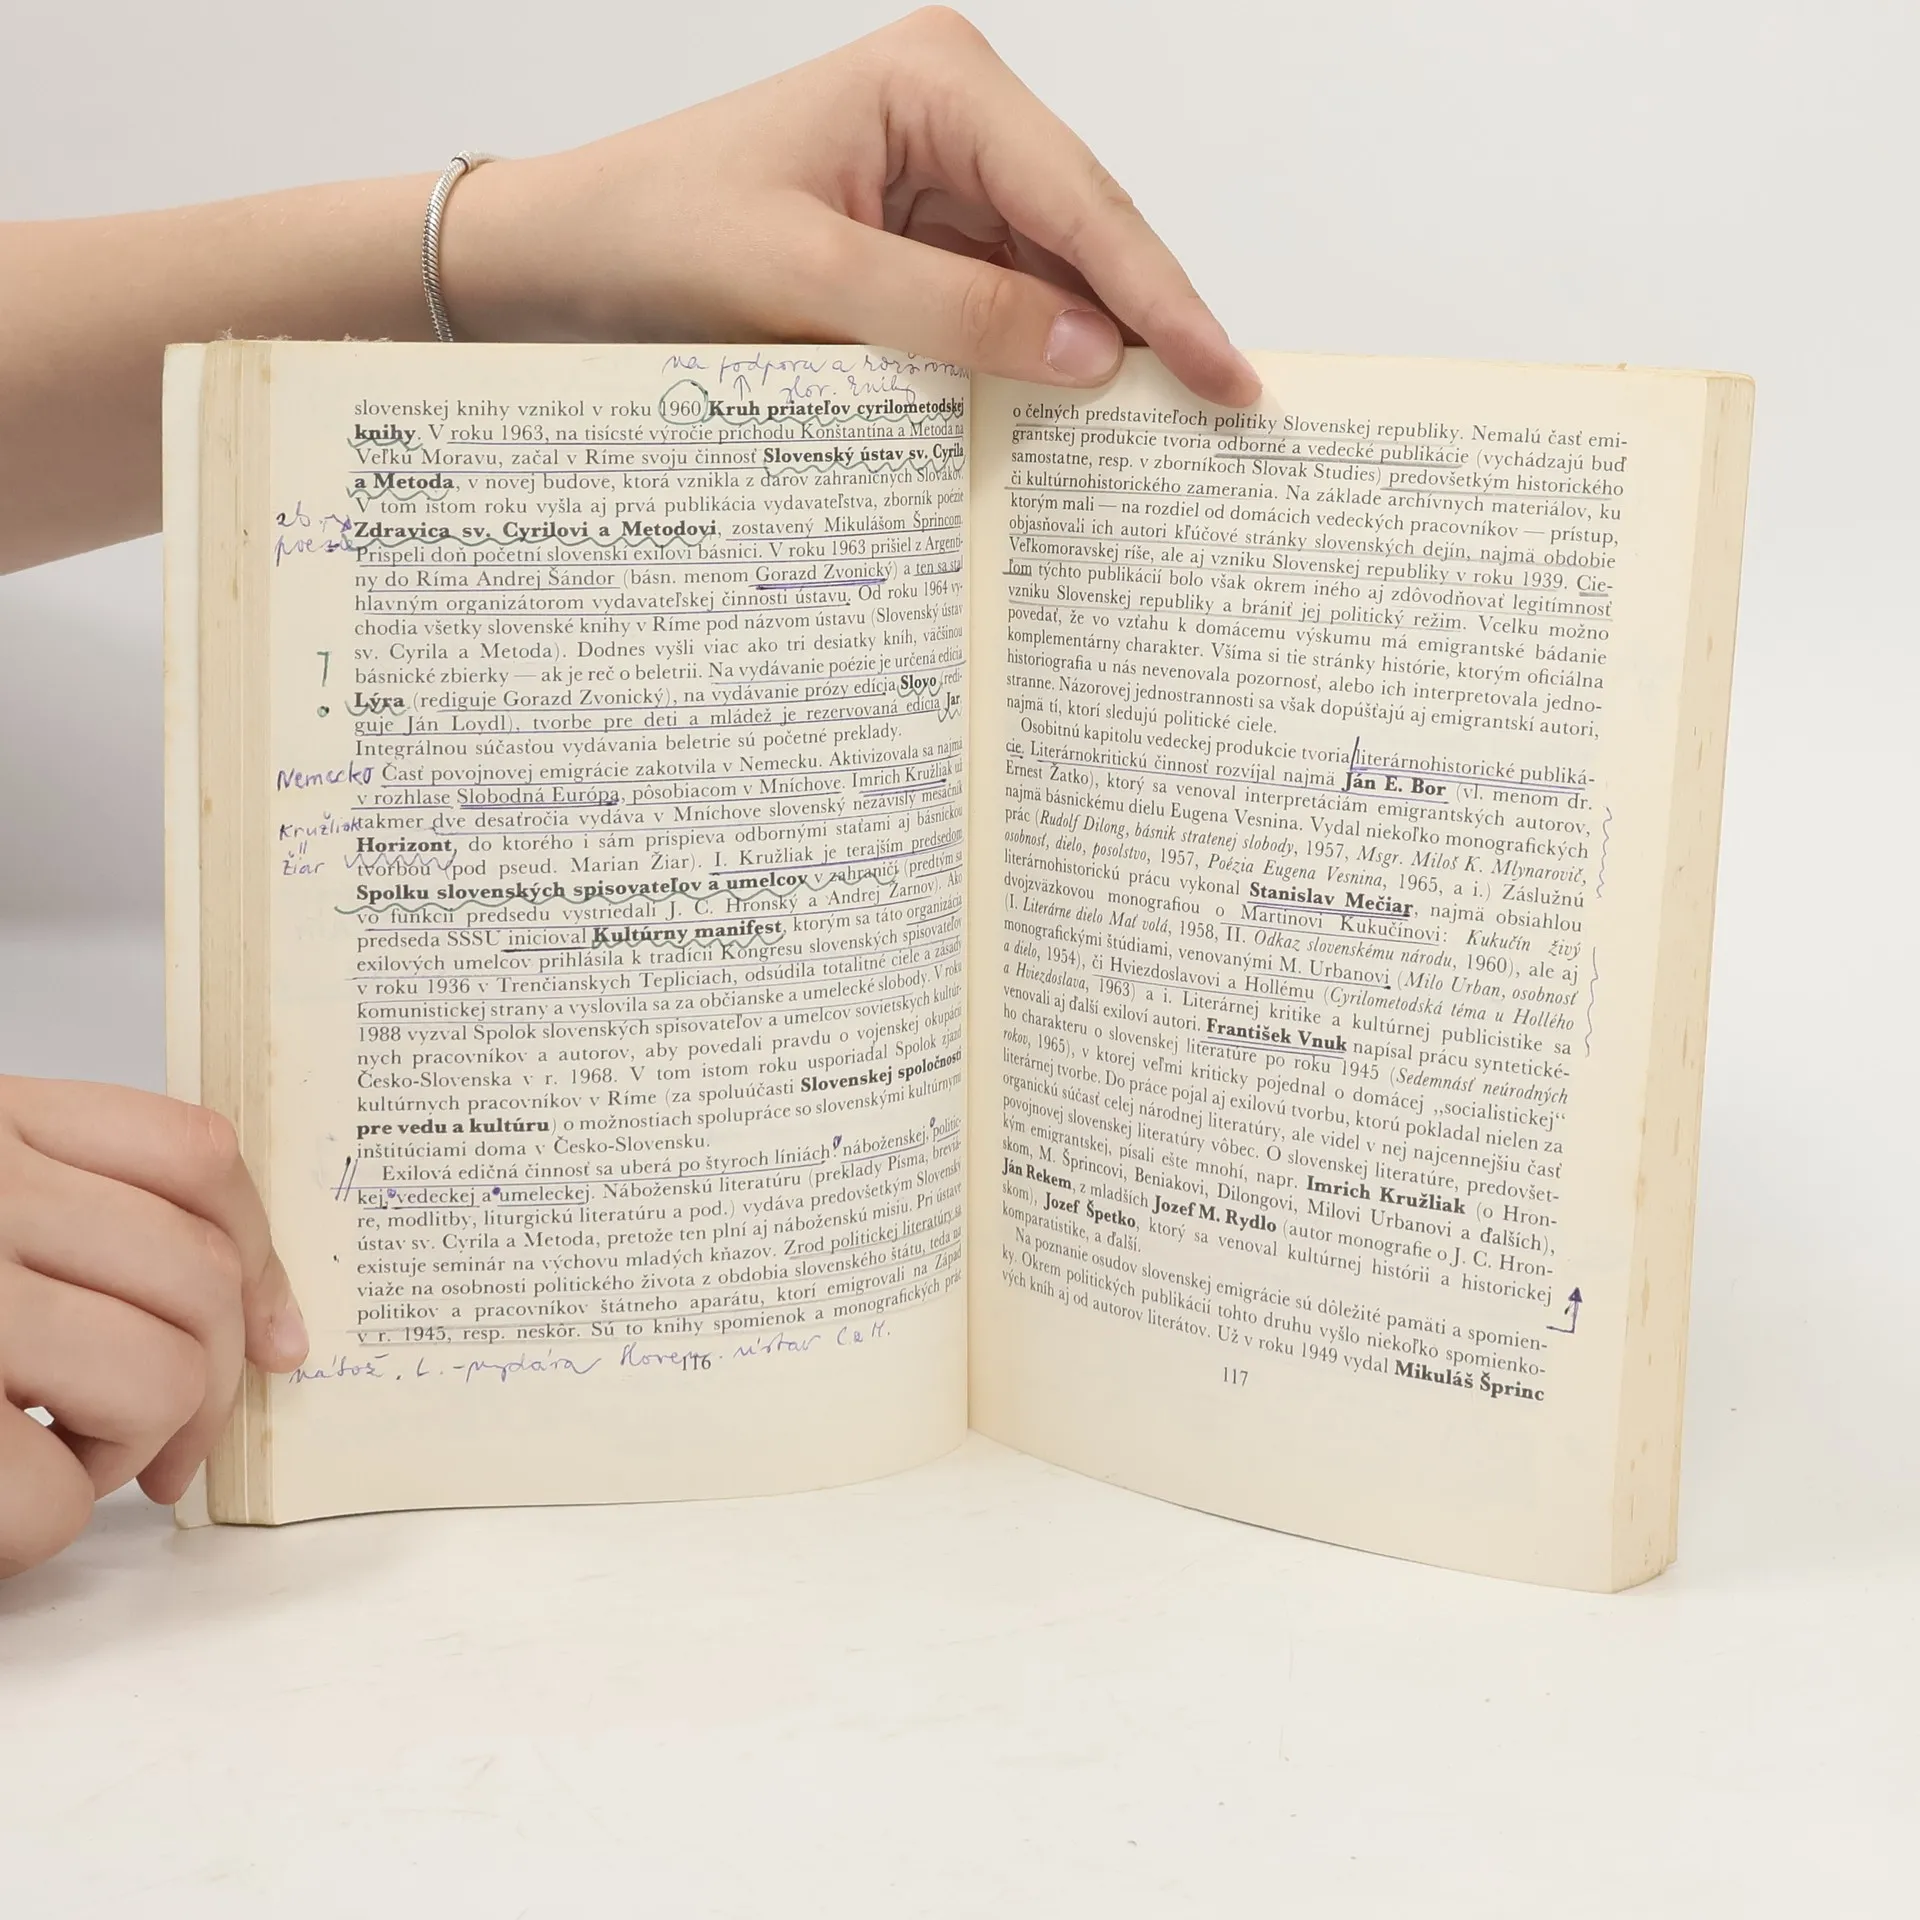 na podporu a rozširovan
slov. knihy
slovenskej knihy vznikol v roku 1960 Kruh priateľov cyrilometodskej
knihy. V roku 1963, na tisícsté výročie príchodu Konštantína a Metoda na
Veľkú Moravu, začal v Ríme svoju činnosť Slovenský ústav sv. Cyrila
a Metoda, v novej budove, ktorá vznikla z darov zahraničných Slovákov.
V tom istom roku vyšla aj prvá publikácia vydavateľstva, zborník poézie
Zdravica sv. Cyrilovi a Metodovi, zostavený Mikulášom Šprincom.
poezie
Prispeli doň početní slovenskí exiloví básnici. V roku 1963 prišiel z Argentí-
ny do Ríma Andrej Šándor (básn. menom Gorazd Zvonický) a ten sa stal
hlavným organizátorom vydavateľskej činnosti ústavu. Od roku 1964 vy-
chodia všetky slovenské knihy v Ríme pod názvom ústavu (Slovenský ústav
sv. Cyrila a Metoda). Dodnes vyšli viac ako tri desiatky kníh, väčšinou
básnické zbierky — ak je reč o beletrii. Na vydávanie poézie je určená edícia
!
Lýra (rediguje Gorazd Zvonický), na vydávanie prózy edícia Slovo (redi-
guje Ján Loydl), tvorbe pre deti a mládež je rezervovaná edícia Jar.
Integrálnou súčasťou vydávania beletrie sú početné preklady.
Nemecko
Časť povojnovej emigrácie zakotvila v Nemecku. Aktivizovala sa najmä
v rozhlase Slobodná Európa, pôsobiacom v Mníchove. Imrich Kružliak už
takmer dve desaťročia vydáva v Mníchove slovenský nezávislý mesačník
Kružliak
=
Žiar
Horizont, do ktorého i sám prispieva odbornými staťami aj básnickou
tvorbou (pod pseud. Marian Žiar). I. Kružliak je terajším predsedom
Spolku slovenských spisovateľov a umelcov v zahraničí (predtým sa
vo funkcii predsedu vystriedali J. C. Hronský a Andrej Žarnov). Ako
predseda SSSU inicioval Kultúrny manifest, ktorým sa táto organizácia
exilových umelcov prihlásila k tradícii Kongresu slovenských spisovateľov
v roku 1936 v Trenčianskych Tepliciach, odsúdila totalitné ciele a zásady
komunistickej strany a vyslovila sa za občianske a umelecké slobody. V roku
1988 vyzval Spolok slovenských spisovateľov a umelcov sovietskych kultúr-
nych pracovníkov a autorov, aby povedali pravdu o vojenskej okupácii
Česko-Slovenska v r. 1968. V tom istom roku usporiadal Spolok zjazd
kultúrnych pracovníkov v Ríme (za spoluúčasti Slovenskej spoločnosti
pre vedu a kultúru) o možnostiach spolupráce so slovenskými kultúrnymi
inštitúciami doma v Česko-Slovensku.
Exilová edičná činnosť sa uberá po štyroch líniách: náboženskej, politic-
kej, vedeckej a umeleckej. Náboženskú literatúru (preklady Písma, breviá-
re, modlitby, liturgickú literatúru a pod.) vydáva predovšetkým Slovenský
ústav sv. Cyrila a Metoda, pretože ten plní aj náboženskú misiu. Pri ústave
existuje seminár na výchovu mladých kňazov. Zrod politickej literatúry sa
viaže na osobnosti politického života z obdobia slovenského štátu, teda na
politikov a pracovníkov štátneho aparátu, ktorí emigrovali na Západ
v r. 1945, resp. neskôr. Sú to knihy spomienok a monografických prác
nábož. L. - vydáva Sloven. ústav C a M.
116
o čelných predstaviteľoch politiky Slovenskej republiky. Nemalú časť emi-
grantskej produkcie tvoria odborné a vedecké publikácie (vychádzajú buď
samostatne, resp. v zborníkoch Slovak Studies) predovšetkým historického
či kultúrnohistorického zamerania. Na základe archívnych materiálov, ku
ktorým mali — na rozdiel od domácich vedeckých pracovníkov — prístup,
objasňovali ich autori kľúčové stránky slovenských dejín, najmä obdobie
Veľkomoravskej ríše, ale aj vzniku Slovenskej republiky v roku 1939. Cie-
ľom týchto publikácií bolo však okrem iného aj zdôvodňovať legitímnosť
vzniku Slovenskej republiky a brániť jej politický režim. Vcelku možno
povedať, že vo vzťahu k domácemu výskumu má emigrantské bádanie
komplementárny charakter. Všíma si tie stránky histórie, ktorým oficiálna
historiografia u nás nevenovala pozornosť, alebo ich interpretovala jedno-
stranne. Názorovej jednostrannosti sa však dopúšťajú aj emigrantskí autori,
najmä tí, ktorí sledujú politické ciele.
Osobitnú kapitolu vedeckej produkcie tvoria literárnohistorické publiká-
cie. Literárnokritickú činnosť rozvíjal najmä Ján E. Bor (vl. menom dr.
Ernest Žatko), ktorý sa venoval interpretáciám emigrantských autorov,
najmä básnickému dielu Eugena Vesnina. Vydal niekoľko monografických
prác (Rudolf Dilong, básnik stratenej slobody, 1957, Msgr. Miloš K. Mlynarovič,
osobnosť, dielo, posolstvo, 1957, Poézia Eugena Vesnina, 1965, a i.) Záslužnú
literárnohistorickú prácu vykonal Stanislav Mečiar, najmä obsiahlou
dvojzväzkovou monografiou o Martinovi Kukučínovi: Kukučín živý
(I. Literárne dielo Mať volá, 1958, II. Odkaz slovenskému národu, 1960), ale aj
monografickými štúdiami, venovanými M. Urbanovi (Milo Urban, osobnosť
a dielo, 1954), či Hviezdoslavovi a Hollému (Cyrilometodská téma u Hollého
a Hviezdoslava, 1963) a i. Literárnej kritike a kultúrnej publicistike sa
venovali aj ďalší exiloví autori. František Vnuk napísal prácu syntetické-
ho charakteru o slovenskej literatúre po roku 1945 (Sedemnásť neúrodných
rokov, 1965), v ktorej veľmi kriticky pojednal o domácej „socialistickej“
literárnej tvorbe. Do práce pojal aj exilovú tvorbu, ktorú pokladal nielen za
organickú súčasť celej národnej literatúry, ale videl v nej najcennejšiu časť
povojnovej slovenskej literatúry vôbec. O slovenskej literatúre, predovšet-
kým emigrantskej, písali ešte mnohí, napr. Imrich Kružliak (o Hron-
skom, M. Šprincovi, Beniakovi, Dilongovi, Milovi Urbanovi a ďalších),
Ján Rekem, z mladších Jozef M. Rydlo (autor monografie o J. C. Hron-
skom), Jozef Špetko, ktorý sa venoval kultúrnej histórii a historickej
komparatistike, a ďalší.
Na poznanie osudov slovenskej emigrácie sú dôležité pamäti a spomien-
ky. Okrem politických publikácií tohto druhu vyšlo niekoľko spomienko-
vých kníh aj od autorov literátov. Už v roku 1949 vydal Mikuláš Šprinc
117